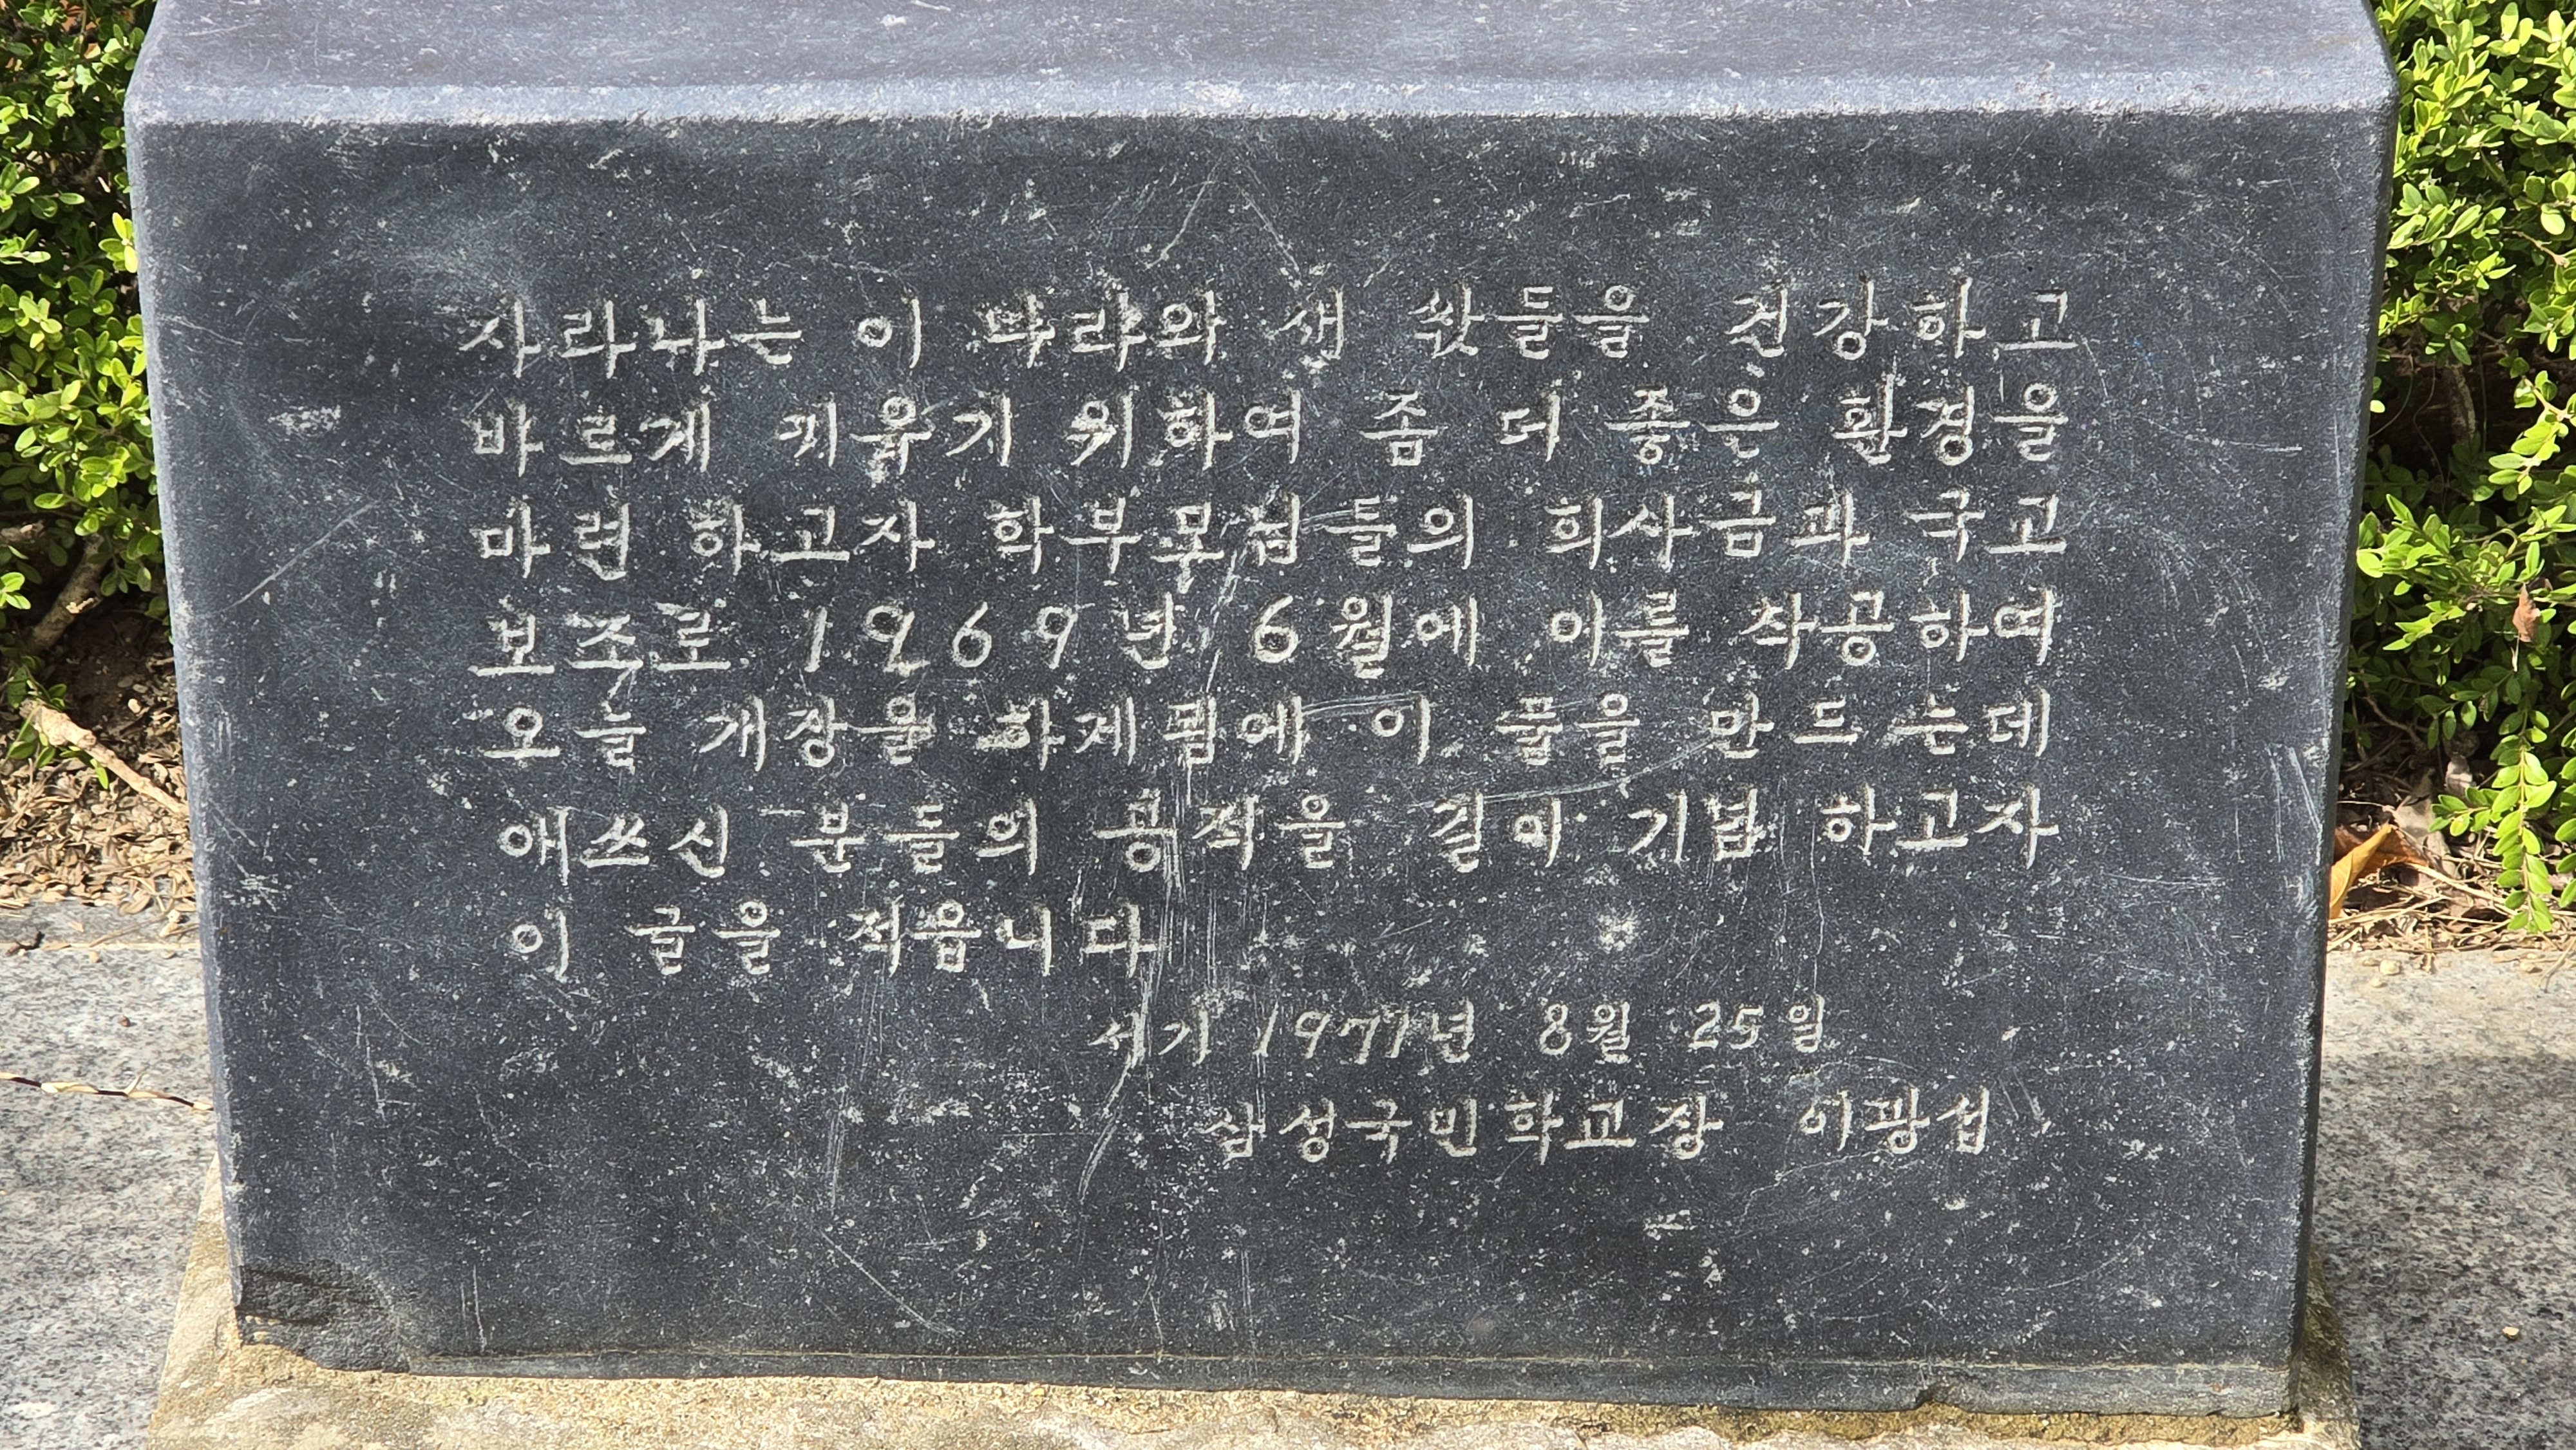 자라나는 이 나라의 새 싻들을 건강하고
바르게 키욹기 위하여 좀 더 좋은 환경을
마련 하고자 학부모님들의 희사금과 국고
보조로 1969년 6월에 이를 착공하여
오늘 개장을 하게됨에 이 풀을 만드는데
애쓰신 분들의 공적을 길이 기념 하고자
이 글을 적읍니다
서기 1971년 8월 25일
삼성국민학교장 이광섭